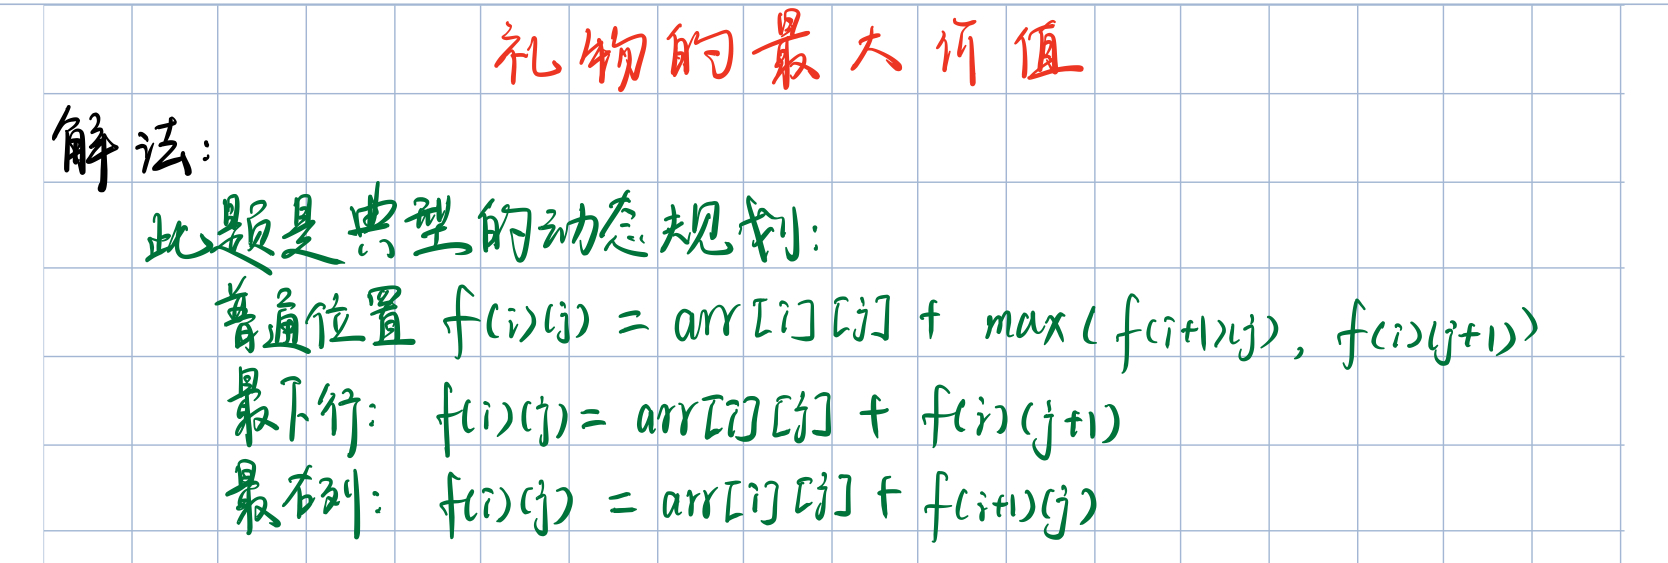 礼物的最大价值
解法:
此题是典型的动态规划:
普通位置 f(i)(j) = arr[i][j] + max( f(i+1)(j), f(i)(j+1))
最下行: f(i)(j) = arr[i][j] + f(i)(j+1)
最右列: f(i)(j) = arr[i][j] + f(i+1)(j)